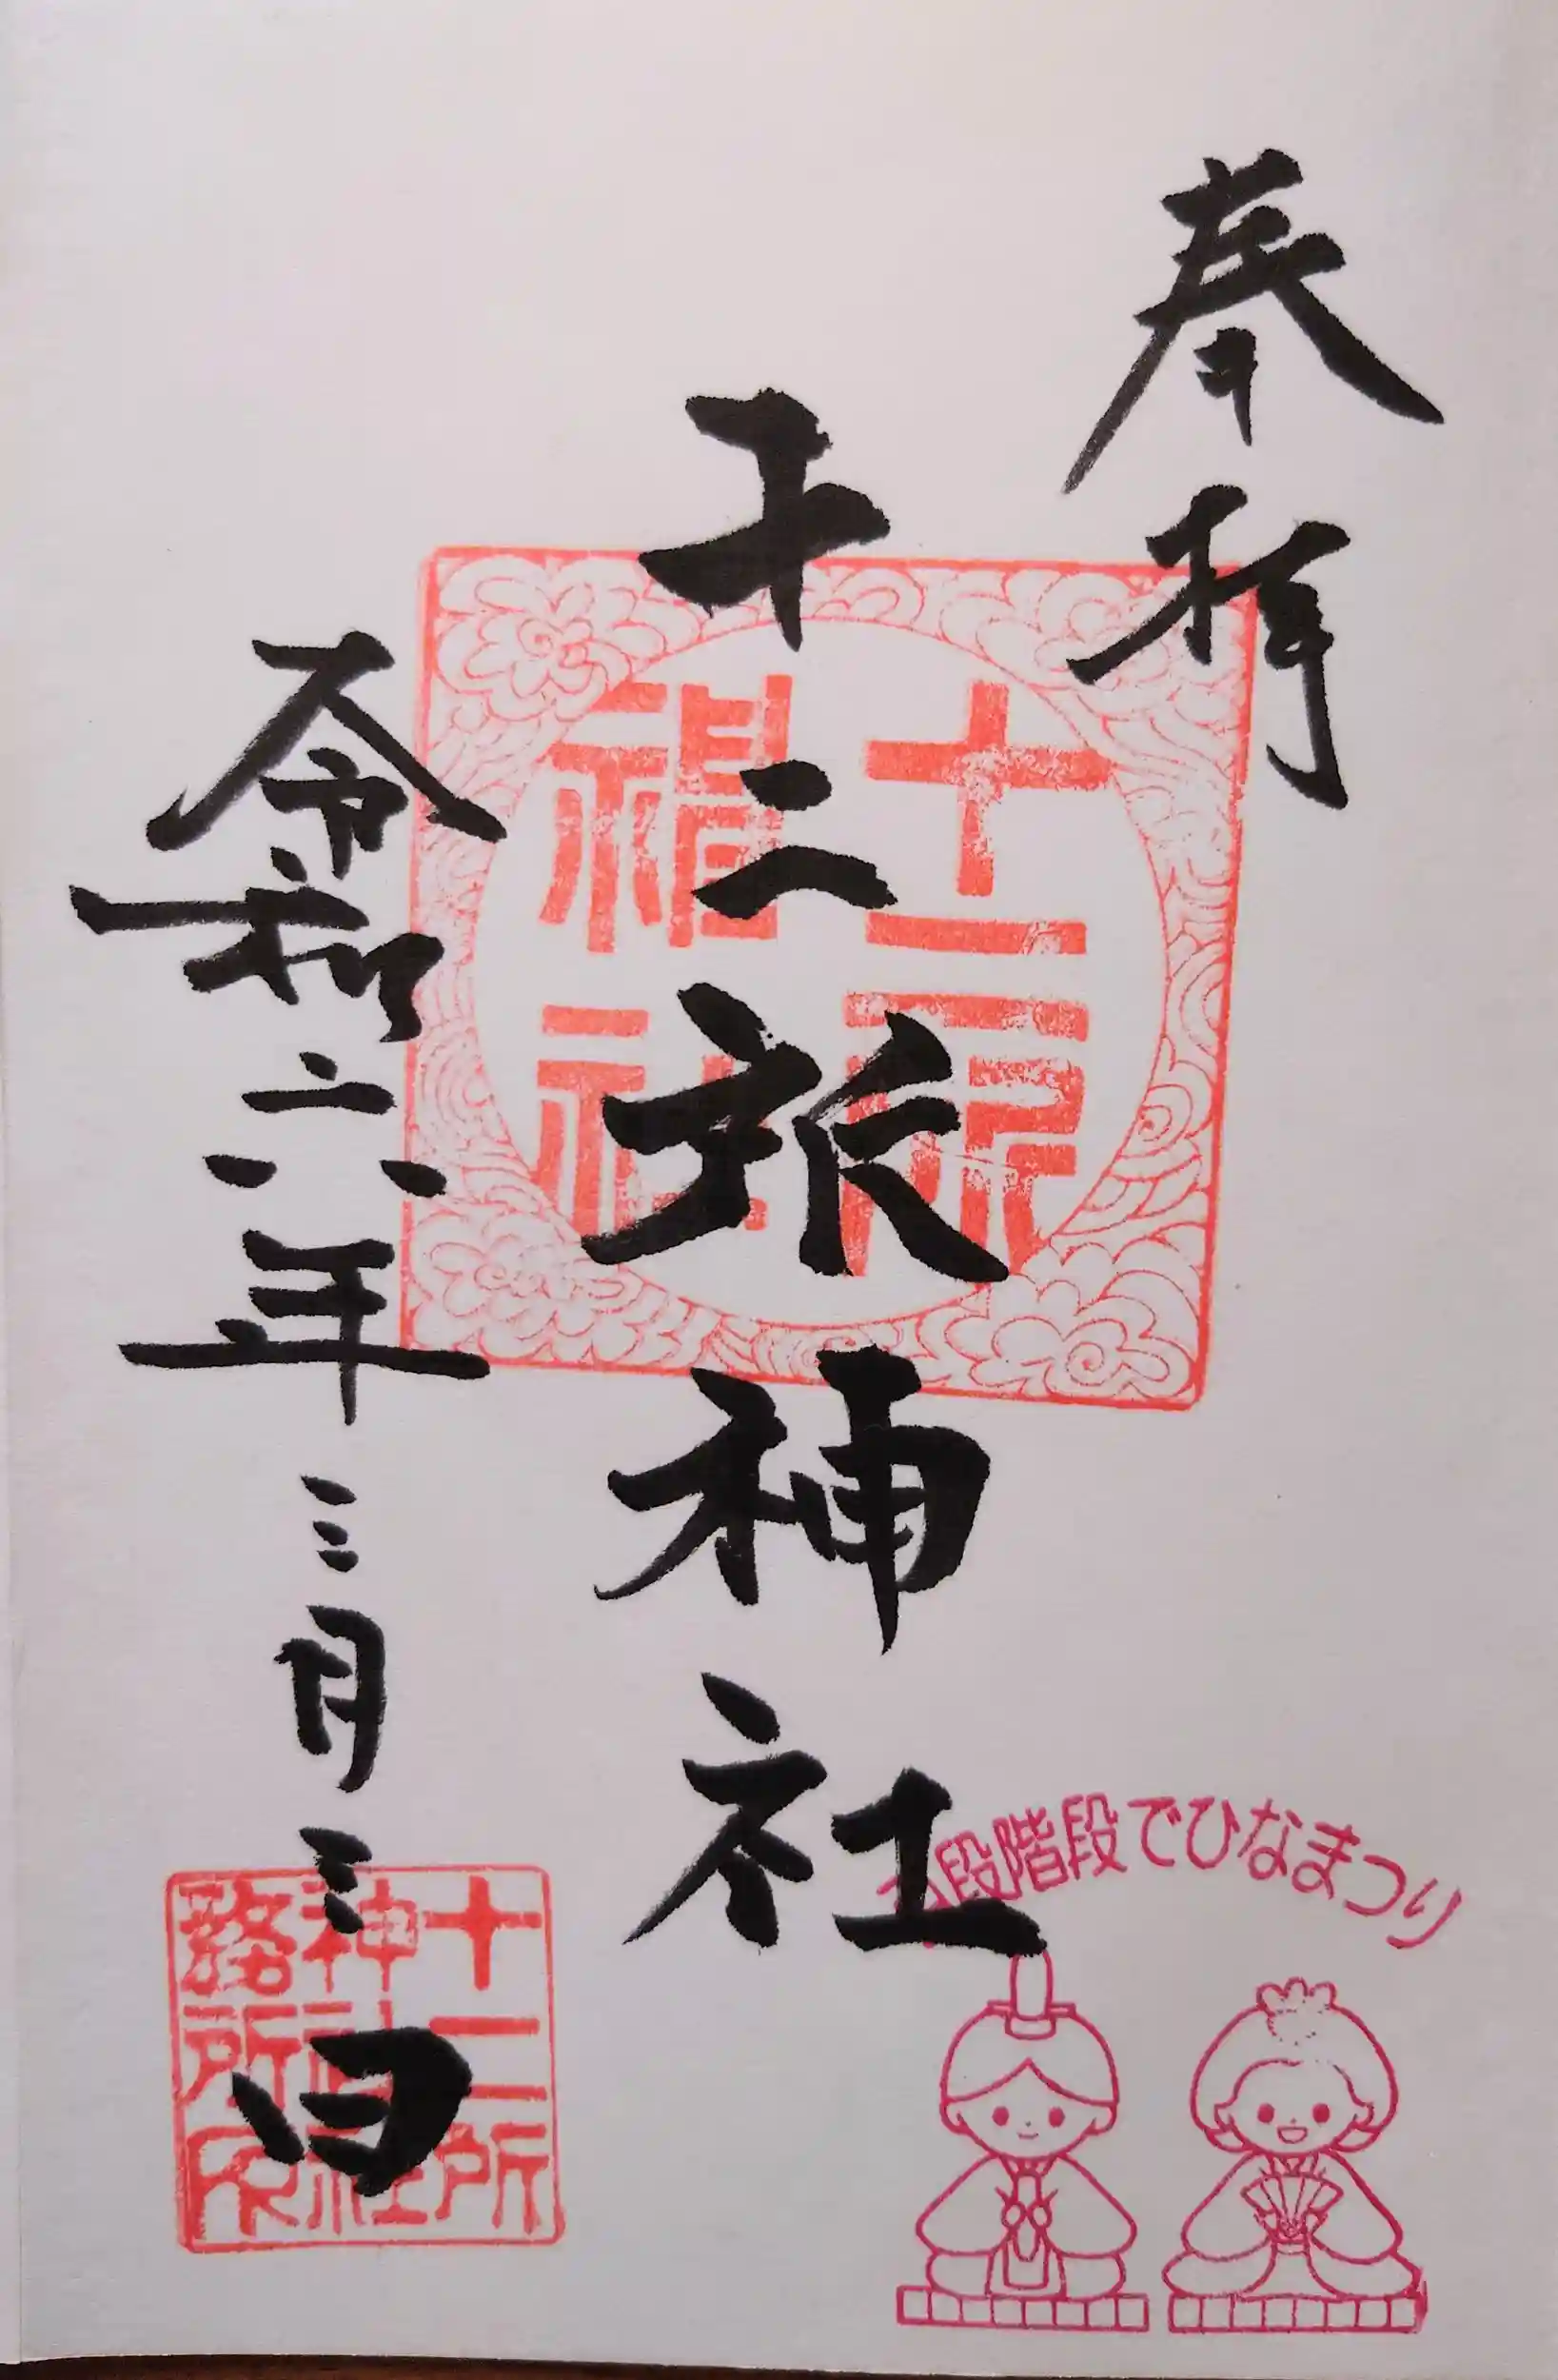 奉拝
十二所神社
令和六年三月三日
十二所
神社
十二所
神社
務所印
段階段でひなまつり